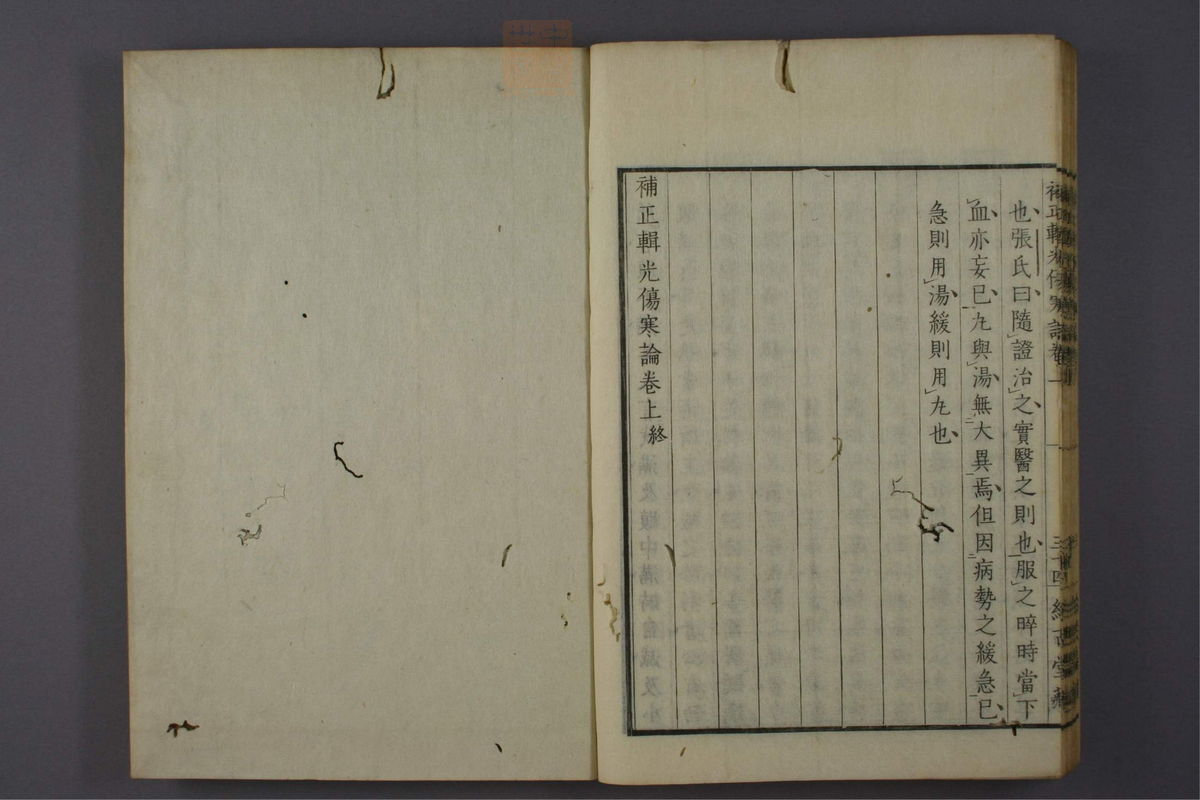 也張氏曰隨證治之實醫之則也服之晬時當下
血亦妄已九與湯無大異焉但因病勢之緩急已
急則用湯緩則用九也
補正輯光傷寒論卷上終